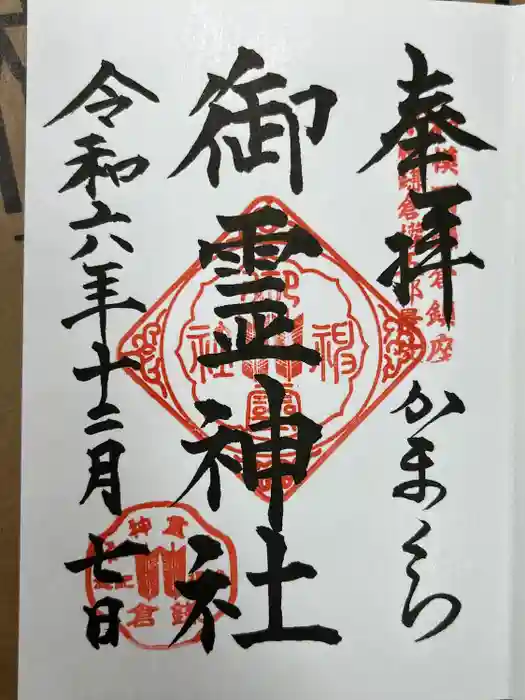 奉拝
かまくら
御霊神社
令和六年十二月七日